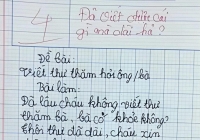 4
Đã viết điêu cái
gì mà dài hả?
Đề bài:
Viết thư thăm hỏi ông/bà
Bài làm:
Đã lâu cháu không viết thư
thăm bà, bà có khỏe không?
Thôi thư đã dài, cháu xin